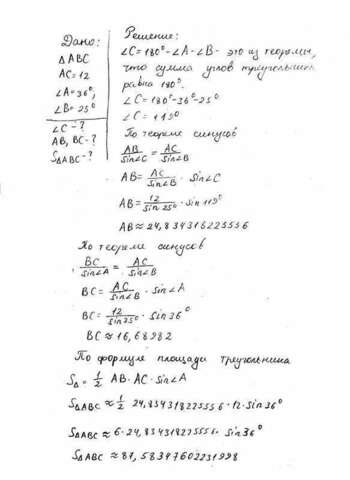 Дано:
△ABC
AC=12
∠A=36°,
∠B=25°
∠C-?
AB, BC-?
S△ABC-?
Решение:
∠C=180°-∠A-∠B- это из теоремы,
что сумма углов треугольника
равна 180°.
∠C=180°-36°-25°
∠C=119°
По теореме синусов
AB/sin∠C = AC/sin∠B
AB= AC/sin∠B · sin∠C
AB= 12/sin25° · sin119°
AB≈24,834318225556
По теореме синусов
BC/sin∠A = AC/sin∠B
BC= AC/sin∠B · sin∠A
BC= 12/sin25° · sin36°
BC≈16,68982
По формуле площади треугольника
S△= 1/2 AB·AC·sin∠A
S△ABC≈ 1/2 24,834318225556·12·sin36°
S△ABC≈6·24,834318225556·sin36°
S△ABC≈87,58347602231998